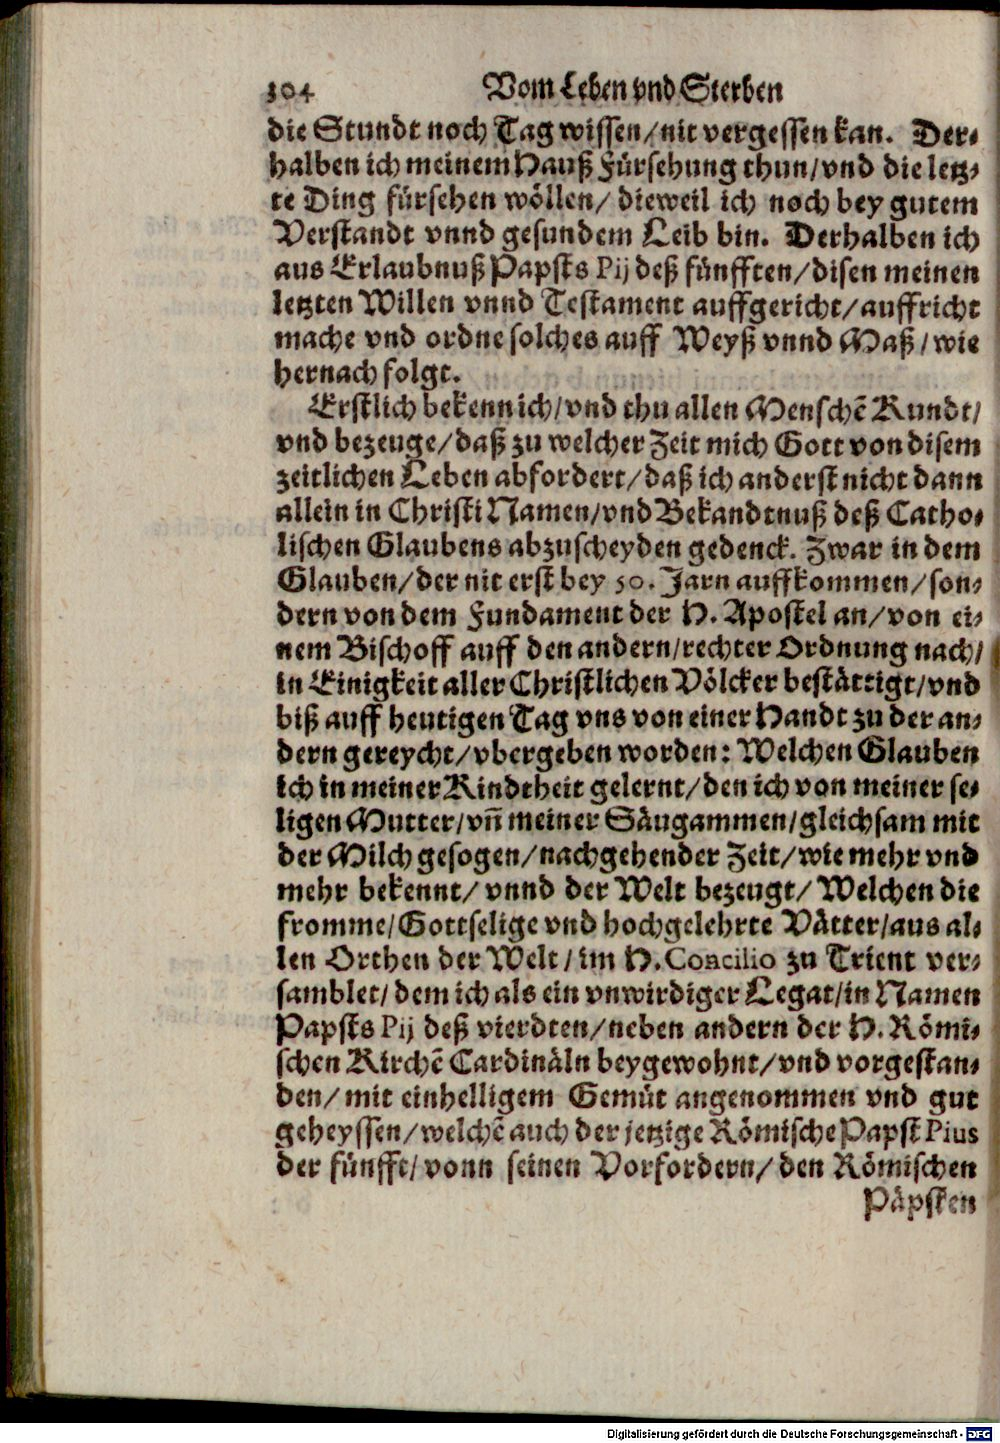 104 Vom Leben vnd Sterben
die Stundt noch Tag wissen/nit vergessen kan. Der⸗
halben ich meinem Hauß Fürsehung thun/vnd die letz⸗
te Ding fürsehen wöllen/ dieweil ich noch bey gutem
Verstandt vnnd gesundem Leib bin. Derhalben ich
aus Erlaubnuß Papsts Pij deß fünfften/disen meinen
letzten Willen vnnd Testament auffgericht/auffricht
mache vnd ordne solches auff Weyß vnnd Maß/wie
hernach folgt.
Erstlich bekenn ich/vnd thu allen Menschē Kundt/
vnd bezeuge/daß zu welcher Zeit mich Gott von disem
zeitlichen Leben abfordert/daß ich anderst nicht dann
allein in Christi Namen/vnd Bekandtnuß deß Catho⸗
lischen Glaubens abzuscheyden gedenck. Zwar in dem
Glauben/der nit erst bey 50. Jarn auffkommen/son⸗
dern von dem Fundament der H. Apostel an/von ei⸗
nem Bischoff auff den andern/rechter Ordnung nach/
in Einigkeit aller Christlichen Völcker bestättigt/vnd
biß auff heutigen Tag vns von einer Handt zu der an⸗
dern gereycht/vbergeben worden: Welchen Glauben
ich in meiner Kindtheit gelernt/den ich von meiner se⸗
ligen Mutter/vn̄ meiner Säugammen/gleichsam mit
der Milch gesogen/nachgehender Zeit/wie mehr vnd
mehr bekennt/vnnd der Welt bezeugt/Welchen die
fromme/Gottselige vnd hochgelehrte Vätter/aus al⸗
len Orthen der Welt/im H. Concilio zu Trient ver⸗
samblet/dem ich als ein vnwirdiger Legat/in Namen
Papsts Pij deß vierdten/neben andern der H. Römi⸗
schen Kirchē Cardinäln beygewohnt/vnd vorgestan⸗
den/mit einhelligem Gemüt angenommen vnd gut
geheyssen/welchē auch der jetzige Römische Papst Pius
der fünfft/vonn seinen Vorfordern/den Römischen
Päpsten
Digitalisierung gefördert durch die Deutsche Forschungsgemeinschaft - DFG